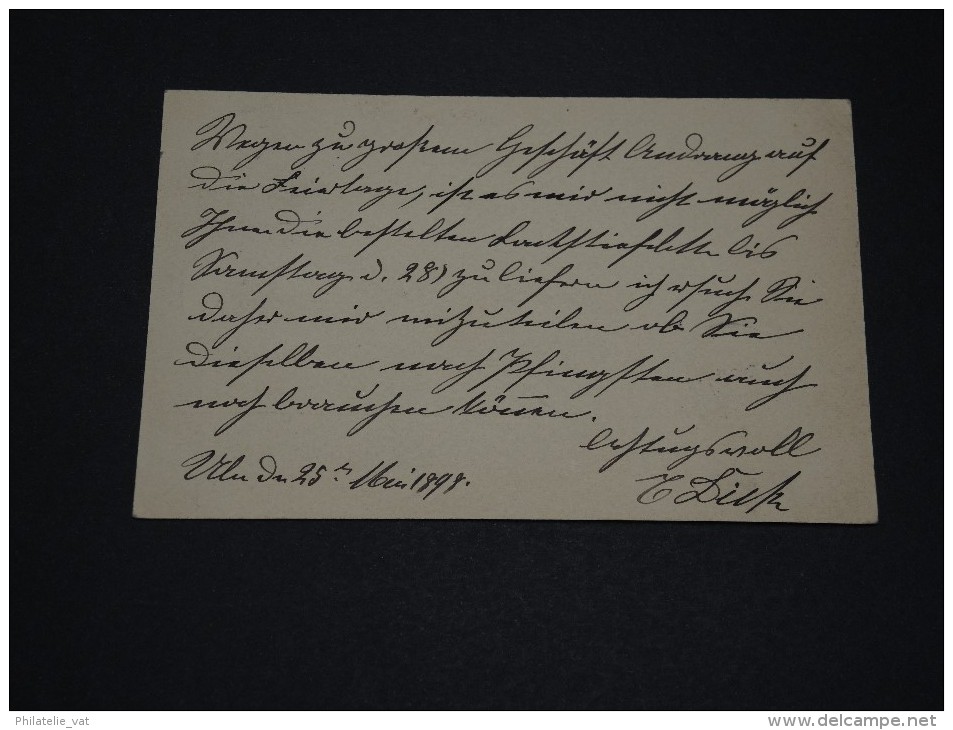 Wegen zu großem Geschäft Andrang auf
die Feiertage, ist es mir nicht möglich
Ihnen die bestelten Lackstiefelette bis
Samstag d. 28) zu liefern ich ersuche Sie
daher mir mitzuteilen ob Sie
dieselben nach Pfingsten auch
noch brauchen können.
Achtugsvoll
Ulm den 25ten Mai 1898.
Philatelie_vat
www.delcampe.net